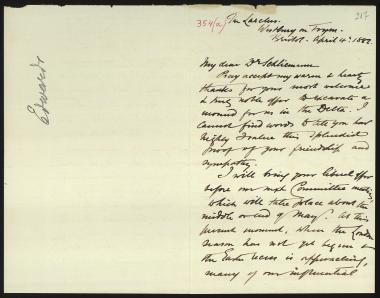 Edwards
354(a)
217
The Larches,
Westbury on Trym.
Bristol. April 4th. 1882.
My dear Dr Schliemann
Pray accept my warm & hearty
thanks for your most welcome
& truly noble offer to excavate a
mound for us in the Delta. I
cannot find words to tell you how
highly I value this splendid
proof of your friendship and
sympathy.
I will bring your liberal offer
before our next Committee meeting,
which will take place about the
middle or end of May. At this
present moment, when the London
season has not yet begun &
the Easter recess is approaching,
many of our influential